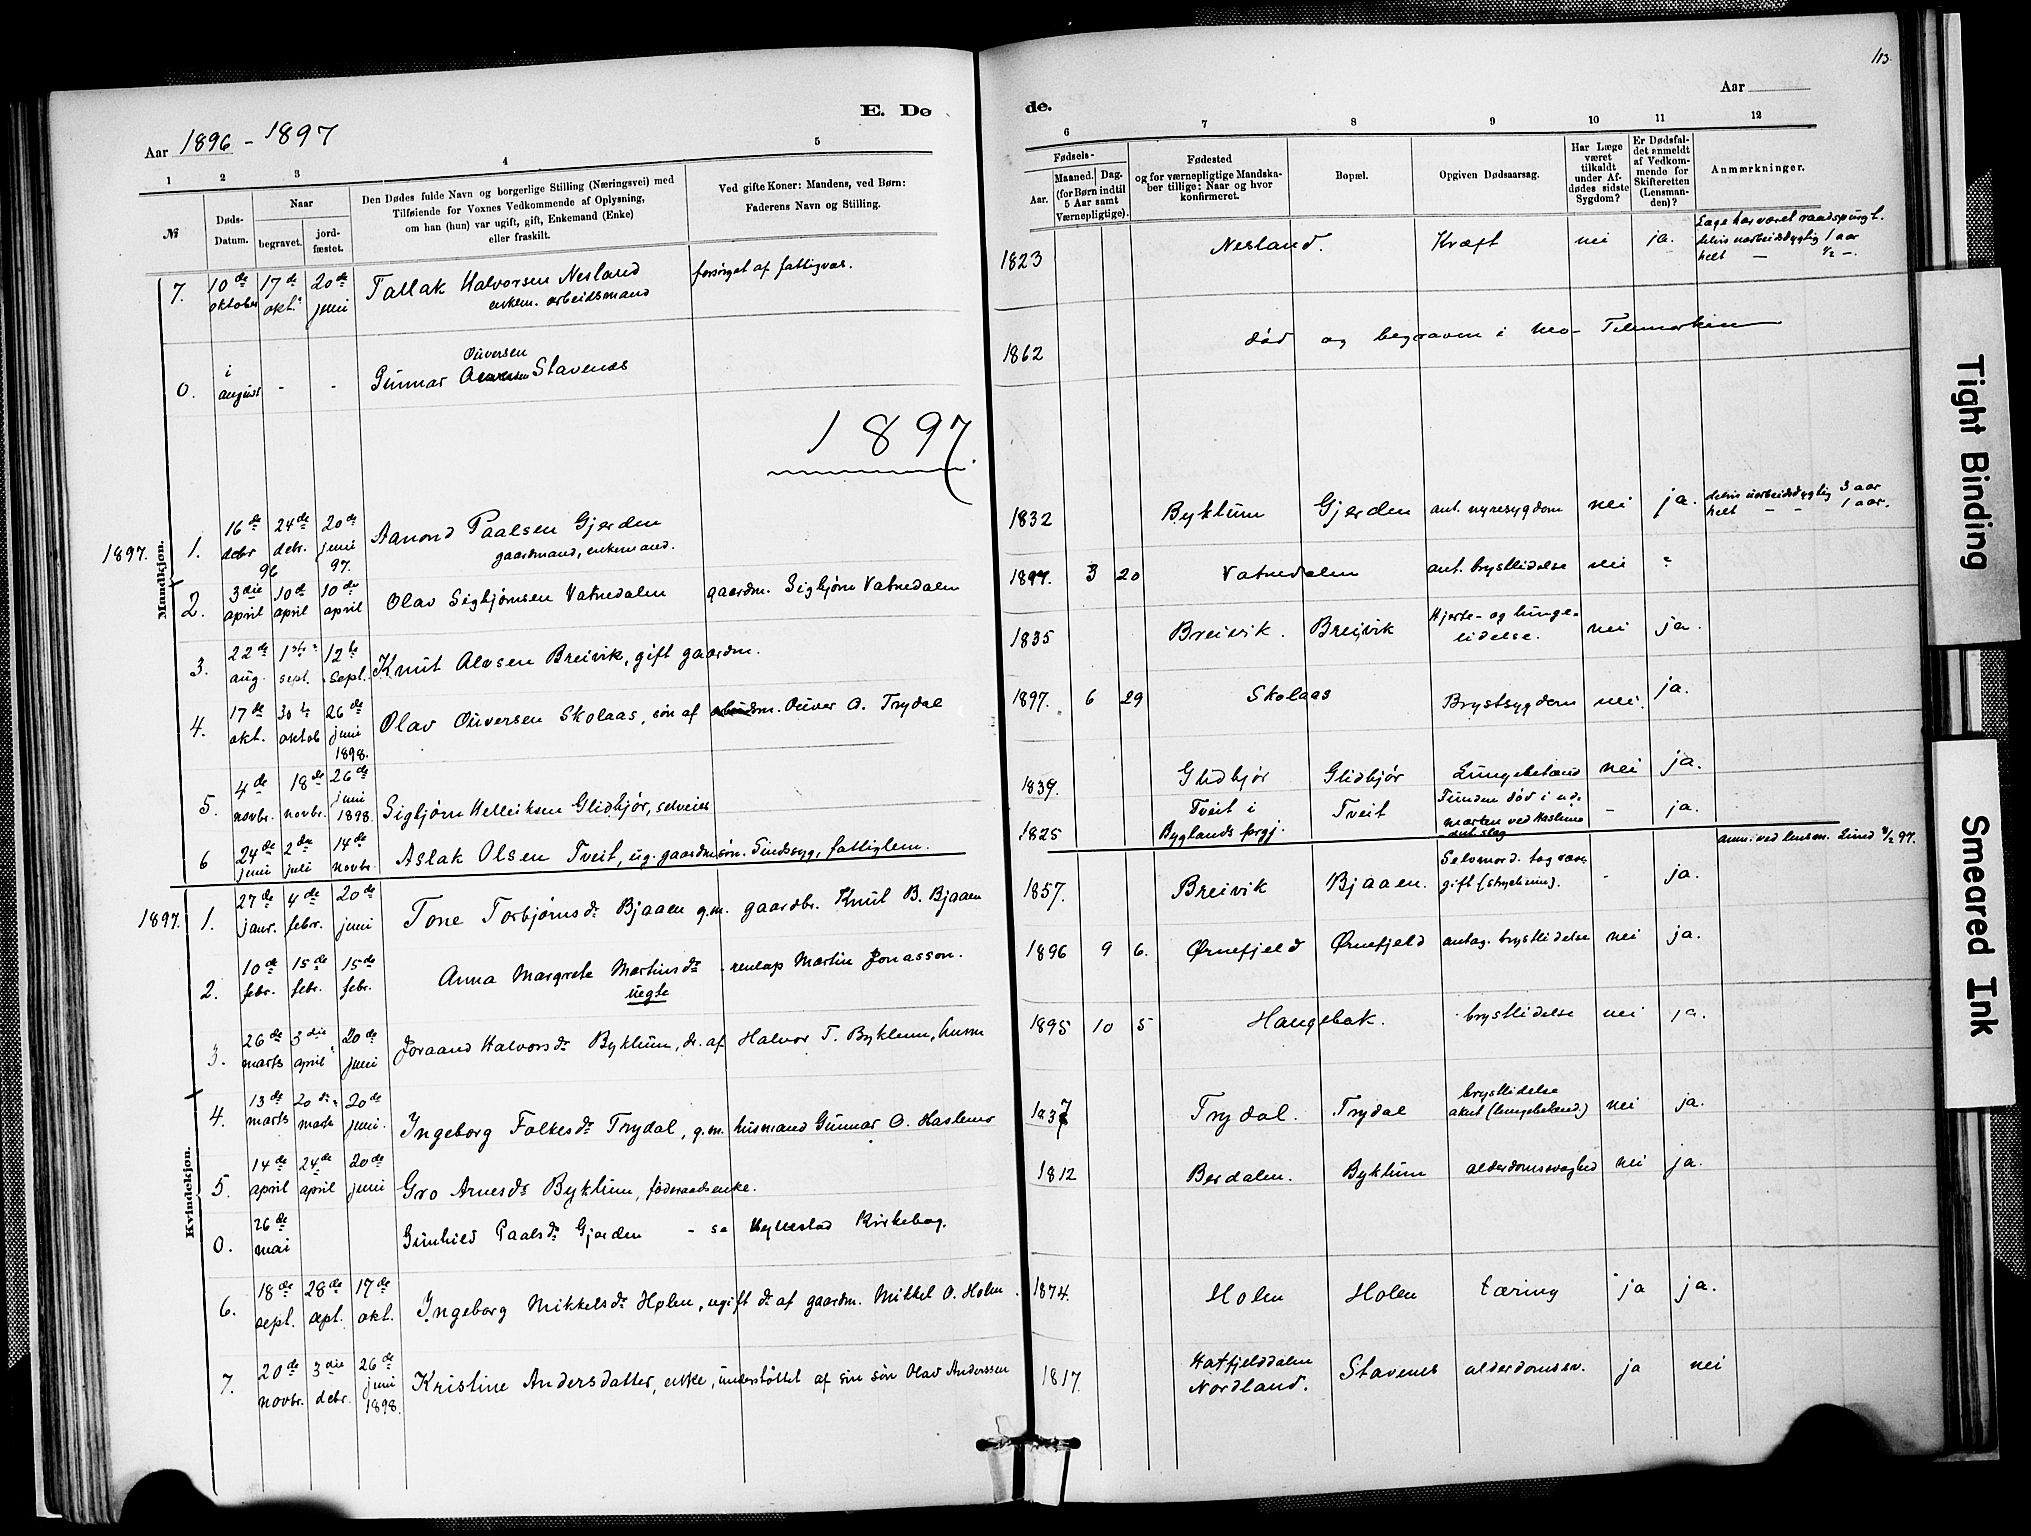 113.
E. Dø
de.
Aar 1896 - 1897
Aar
1 2 3 4 5
6 7 8 9 10 11 12
№
Døds-
Datum.
Naar
begravet.
jord-
fæstet.
Den Dødes fulde Navn og borgerlige Stilling (Næringsvei) med
Tilføiende for Voxnes Vedkommende af Oplysning,
om han (hun) var ugift, gift, Enkemand (Enke)
eller fraskilt.
Ved gifte Koner: Mandens, ved Børn:
Faderens Navn og Stilling.
Fødsels-
Aar.
Maaned. Dag.
(for Børn indtil
5 Aar samt
Værnepligtige).
Fødested
og for værnepligtige Mandska-
ber tillige: Naar og hvor
konfirmeret.
Bopæl.
Opgiven Dødsaarsag.
Har Læge
været
tilkaldt
under Af-
dødes sidste
Sygdom?
Er Dødsfal-
det anmeldt
af Vedkom-
mende for
Skifteretten
(Lensman-
den)?
Anmærkninger.
Mandkjøn.
7. 10de oktober 17de okt. 20de juni Tallak Halvorsen Nesland
enkem. arbeidsmand
forsørget af fattigvæs.
1823 Nesland. Kræft nei ja. Læge har været raadspurgt.
delvis uarbeidsdygtig 1 aar
helt — ½ —.
0. i august - - Gunnar Ouversen Stavenes
1862 død og begraven i Mo - Telemarken
1897.
1897. 1. 16de debr 24de debr. 96 20de juni 97. Aanond Paalsen Gjerden
gaardmand, enkemand.
1832 Byklum Gjerden ant. nyresygdom nei ja. delvis uarbeidsdygtig 3 aar
helt — - 1 aar.
2. 3die april 10de april 10de april Olav Sigbjørnsen Vatnedalen gaardm. Sigbjørn Vatnedalen
1897. 3 20 Vatnedalen ant. brystlidelse nei "
3. 22de aug. 1ste sept. 12te sept. Knut Alvsen Breivik, gift gaardm.
1835 Breivik. Breivik Hjerte- og lunge-
lidelse. nei ja.
4. 17de okt. 30te oktob 26de juni 1898. Olav Ouversen Skolaas, søn af arbeidsm. Ouver O. Trydal
1897. 6 29 Skolaas Brystsygdom nei. ja.
5. 4de novbr. 18de novbr. 26de juni 1898. Sigbjørn Helleiksen Glidbjør, selveier
1839. Glidbjør Glidbjør Lungebetænd nei ja.
6 24de juni 2den juli 14de novbr. Aslak Olsen Tveit, ug. gaardmsøn. Sindssyg, fattiglem.
1825 Tveit i
Byglands prgj. Tveit Funden død i ud-
marken ved Haslemo
ant. slag - ja.
Kvindekjøn.
1897. 1. 27de janr. 4de febr. 20de juni Tone Torbjørnsdr Bjaaen g.m. gaardbr. Knut B. Bjaaen
1857. Breivik Bjaaen. Selvmord. tog
gift - ja. anm. ved lensm. Lund
2. 10de febr. 15de febr. 15de febr. Anna Margrete Martinsdr
uegte
Martin Jonasson.
1896 9 6. Ørnefjeld Ørnefjeld antag. brystlidelse nei ja.
3. 26de marts 3die april 20de juni Joraand Halvorsdr Byklum, dr. af Halvor T. Byklum, husm
1895 10 5 Haugebak. brystlidelse nei ja.
4. 13de marts 20de marts 20de juni. Ingeborg Folkesdr Trydal, g.m. husmand Gunnar O. Haslemo
1837 Trydal. Trydal brystlidelse
akut (lungebetænd.) nei ja.
5. 14de april 24de april 20de juni Gro Arnesdr Byklum, føderaadsenke.
1812 Berdalen. Byklum alderdomssvaghed nei ja.
0. 26de mai Gunhild Paalsdr Gjerden - se Hyllestad Kirkebog.
6. 18de sept. 28de sept. 17de okt. Ingeborg Mikkelsdr Holen, ugift dr af gaardm. Mikkel O. Holen.
1874. Holen Holen tæring ja ja.
7. 20de novbr. 3die debr. 26de juni 1898. Kristine Andersdatter, enke, understøttet af sin søn Olav Anderssen
1817. Hatfjelddalen
Nordland. Stavenes alderdomssv. ja nei
Tight Binding
Smeared Ink